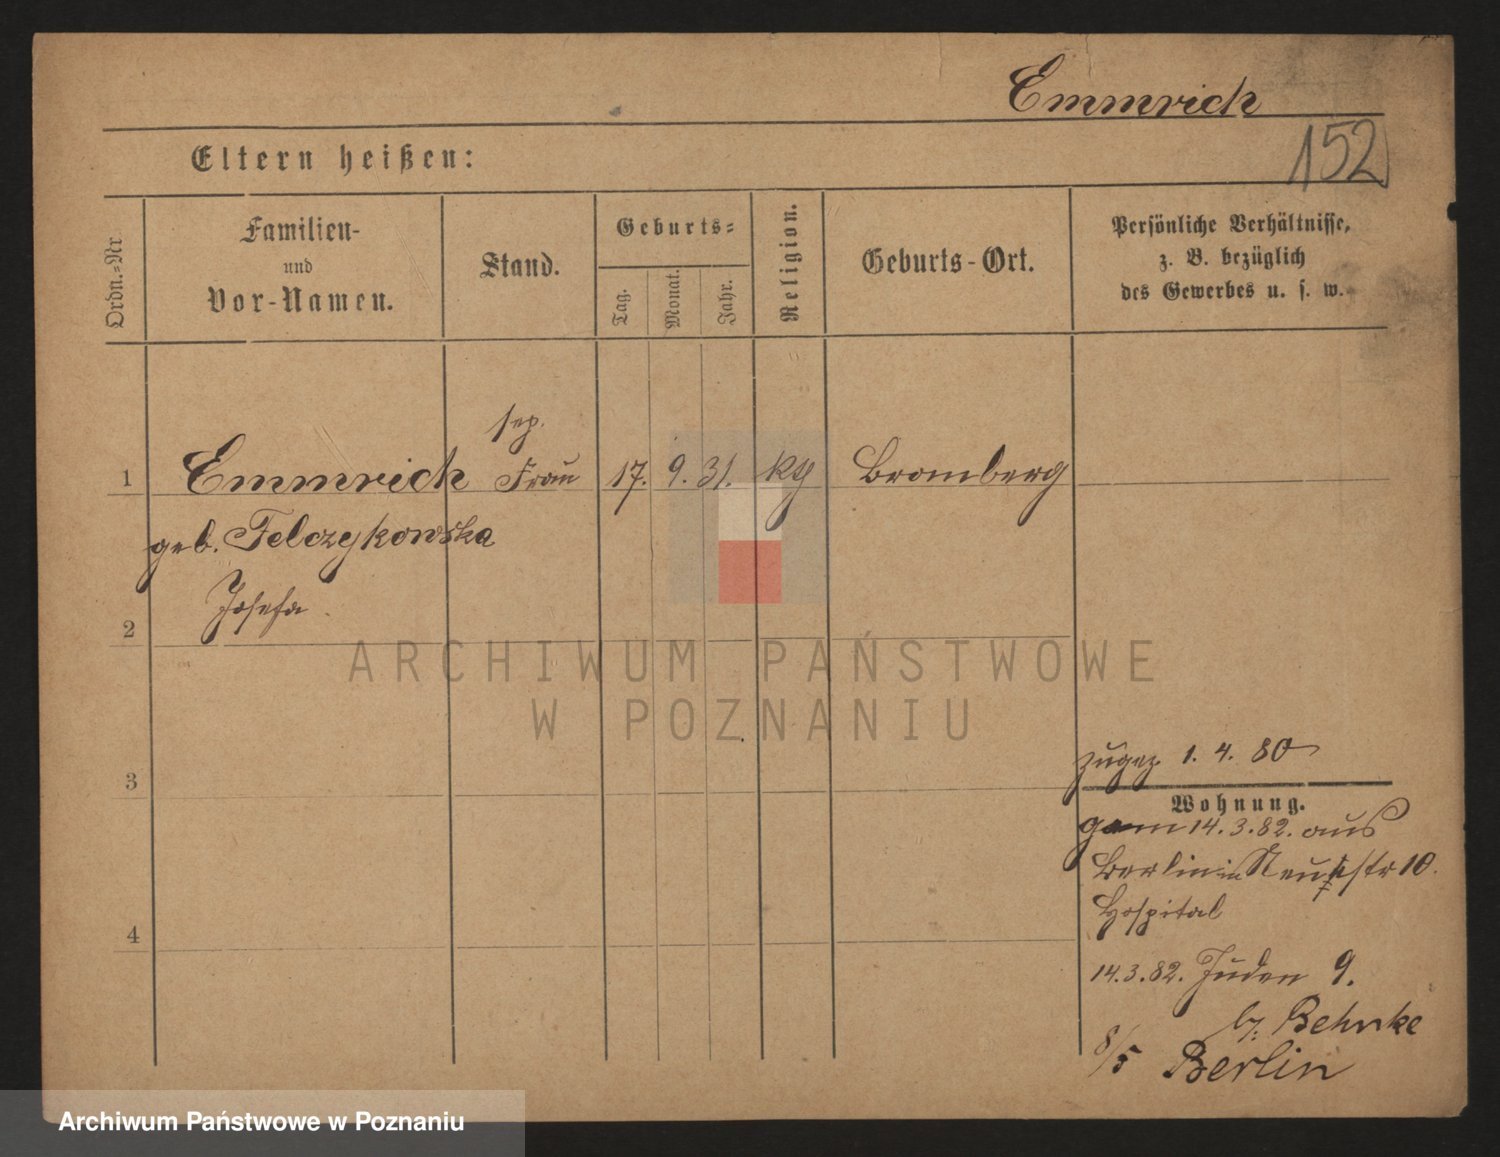 Emmrich
152
Eltern heißen:
Ordn.-Nr.
Familien-
und
Vor-Namen.
Stand.
Geburts-
Tag.
Monat.
Jahr.
Religion.
Geburts-Ort.
Persönliche Verhältnisse,
z. B. bezüglich
des Gewerbes u. s. w.
sep.
1 Emmrich Frau 17. 9. 31. Bromberg
geb. Felczykowska
Josefa
2
ARCHIWUM PAŃSTWOWE
W POZNANIU
zugez. 1. 4. 80
3
Wohnung.
14. 3. 82. aus
Berlin in Neustr 10.
Hospital
4
14. 3. 82. Juden 9.
b. Behnke
8/5 Berlin
Archiwum Państwowe w Poznaniu